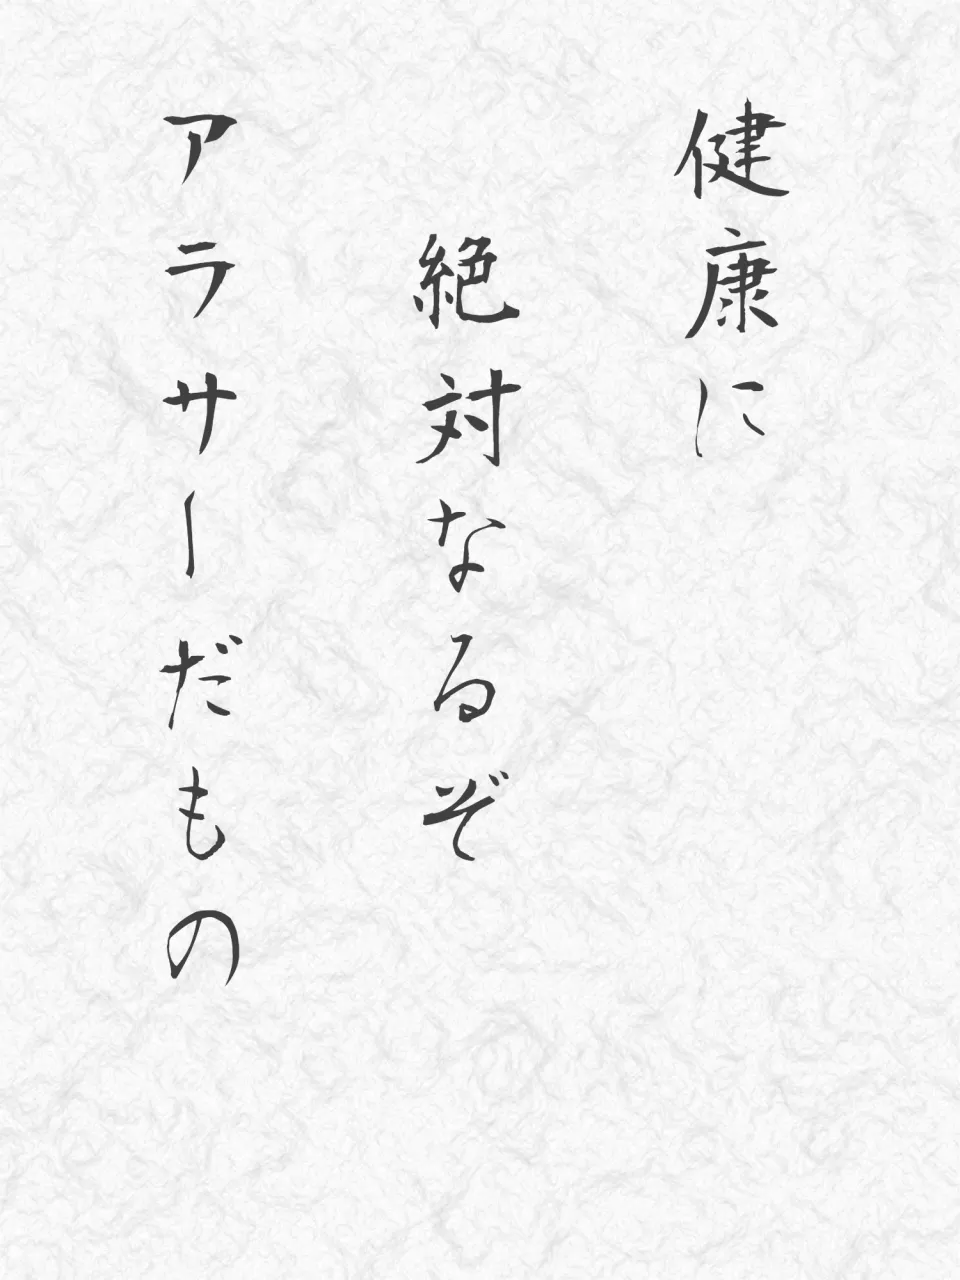 健康に
絶対なるぞ
アラサーだもの